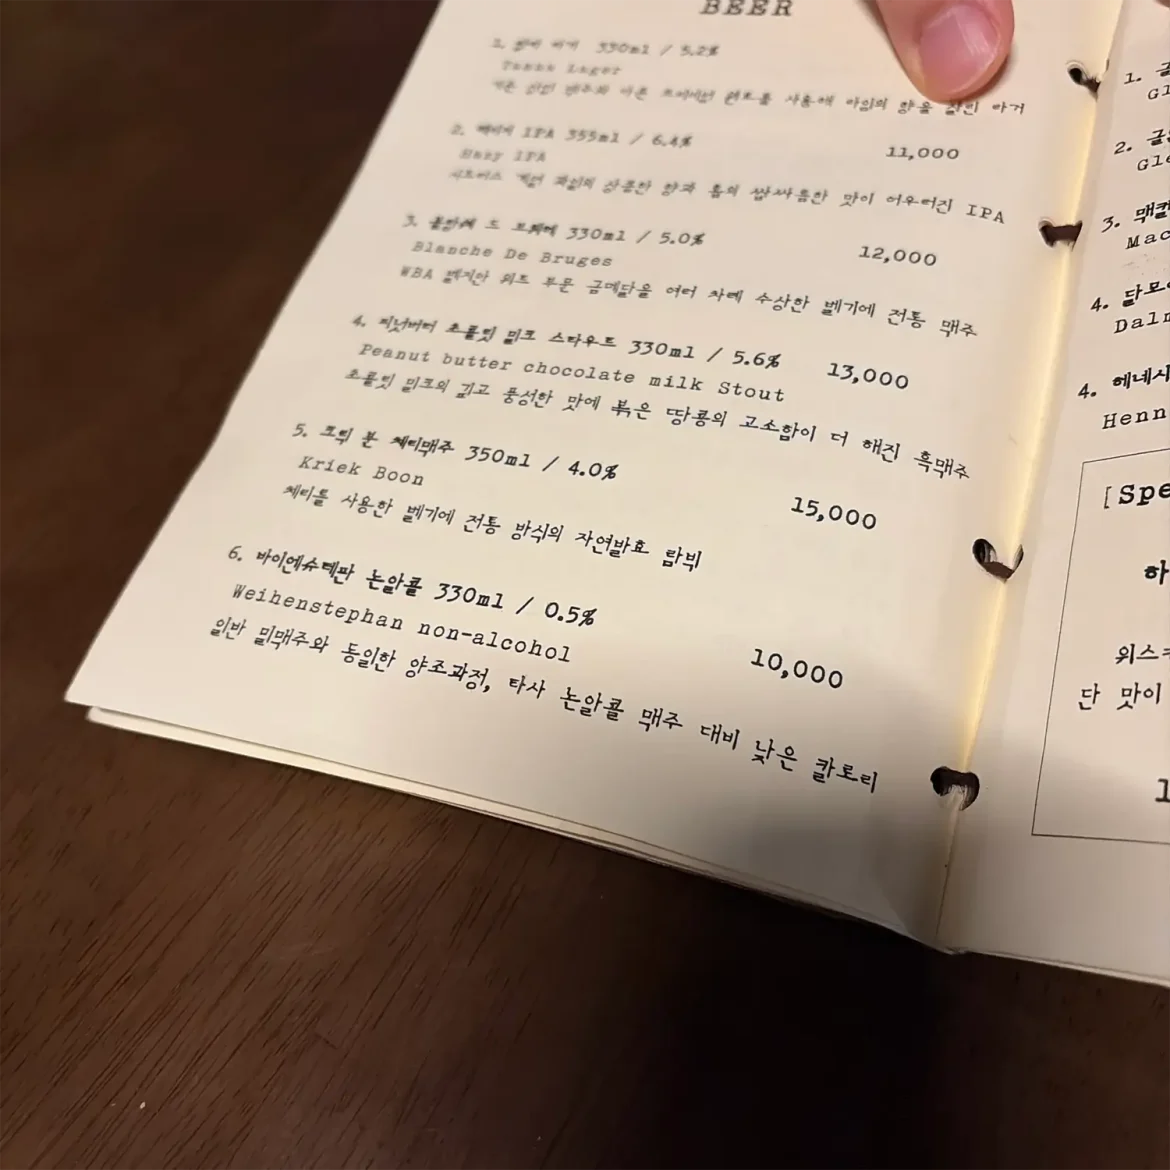 BEER
330ml / 5.2%
Lager
사용해 아임의 향을 살린 라거
11,000
2. 헤이지 IPA 355ml / 6.4%
Hazy IPA
상큼한 향과 홉의 쌉싸름한 맛이 어우러진 IPA
12,000
3. 블랑쉐 드 브뤼헤 330ml / 5.0%
Blanche De Bruges
WBA 벨지안 위트 부문 금메달을 여러 차례 수상한 벨기에 전통 맥주
13,000
4. 피넛버터 초콜릿 밀크 스타우트 330ml / 5.6%
Peanut butter chocolate milk Stout
초콜릿 밀크의 깊고 풍성한 맛에 볶은 땅콩의 고소함이 더 해진 흑맥주
15,000
5. 크릭 분 체리맥주 350ml / 4.0%
Kriek Boon
체리를 사용한 벨기에 전통 방식의 자연발효 람빅
10,000
6. 바이엔슈테판 논알콜 330ml / 0.5%
Weihenstephan non-alcohol
일반 밀맥주와 동일한 양조과정, 타사 논알콜 맥주 대비 낮은 칼로리
1. 글
Gl
2. 글
Gle
3. 맥캘
Mac
4. 달모
Dalm
4. 헤네시
Henn
[Spe
하
위스키
단 맛이
1